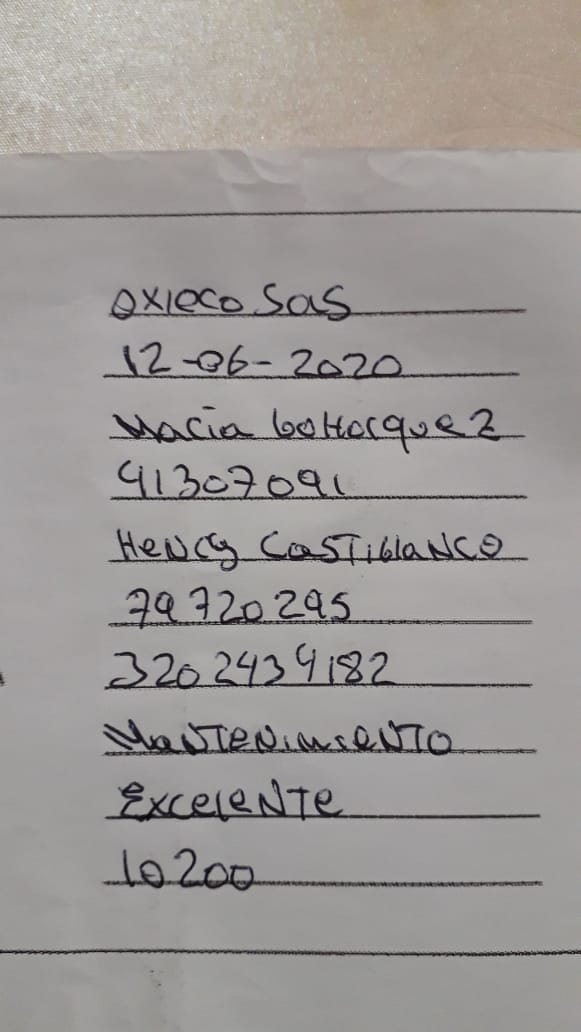 OXIECO SaS
12-06-2020
Maria bohorquez
41307091
Henry Castiblanco
79720295
3202434182
Mantenimiento
Excelente
10200